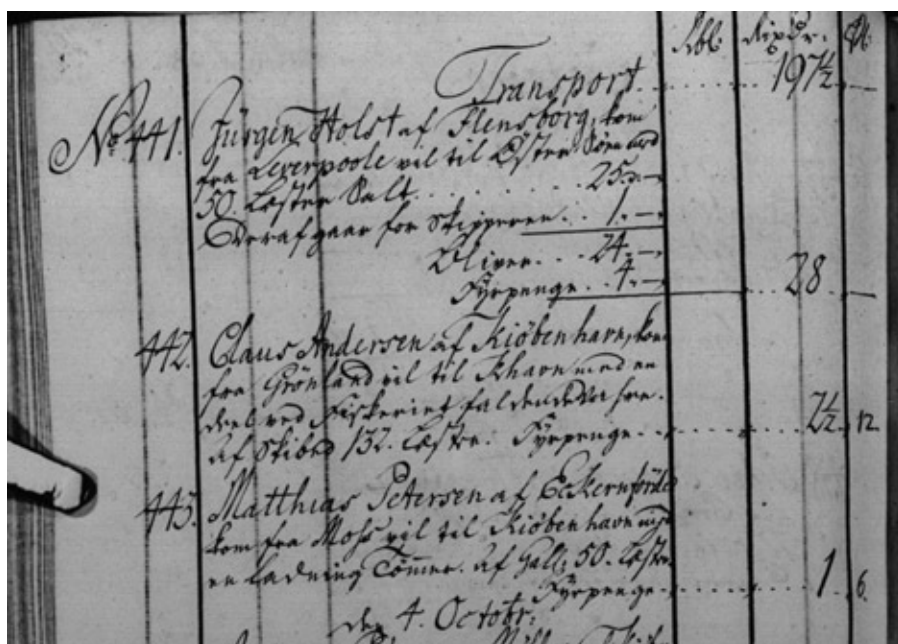 Rbl: RixDr. ß.
Transport . . . . . 197½
No 441. Jürgen Holst af Flensborg, kom
fra Leverpoole vil til Øster Søen med
50. Læster Salt . . . . . . . 25.–
Deraf gaar for Skipperen . . 1.–
Bliver . . . 24.–
Fyrpenge . . 4.– 28
442. Claus Andersen af Kiöbenhavn, kom
fra Grönland vil til Khavn med en
deel ved Fiskeriet faldende
af Skibed 132. Læster. Fyrpenge . . . . . 2½ 12.
443. Matthias Petersen af Eckernförde
kom fra Moss vil til Kiöbenhavn
en Ladning Tømmer. af Gall: 50. Læster
Fyrpenge . . . . . 1 6.
den 4. Octobr: